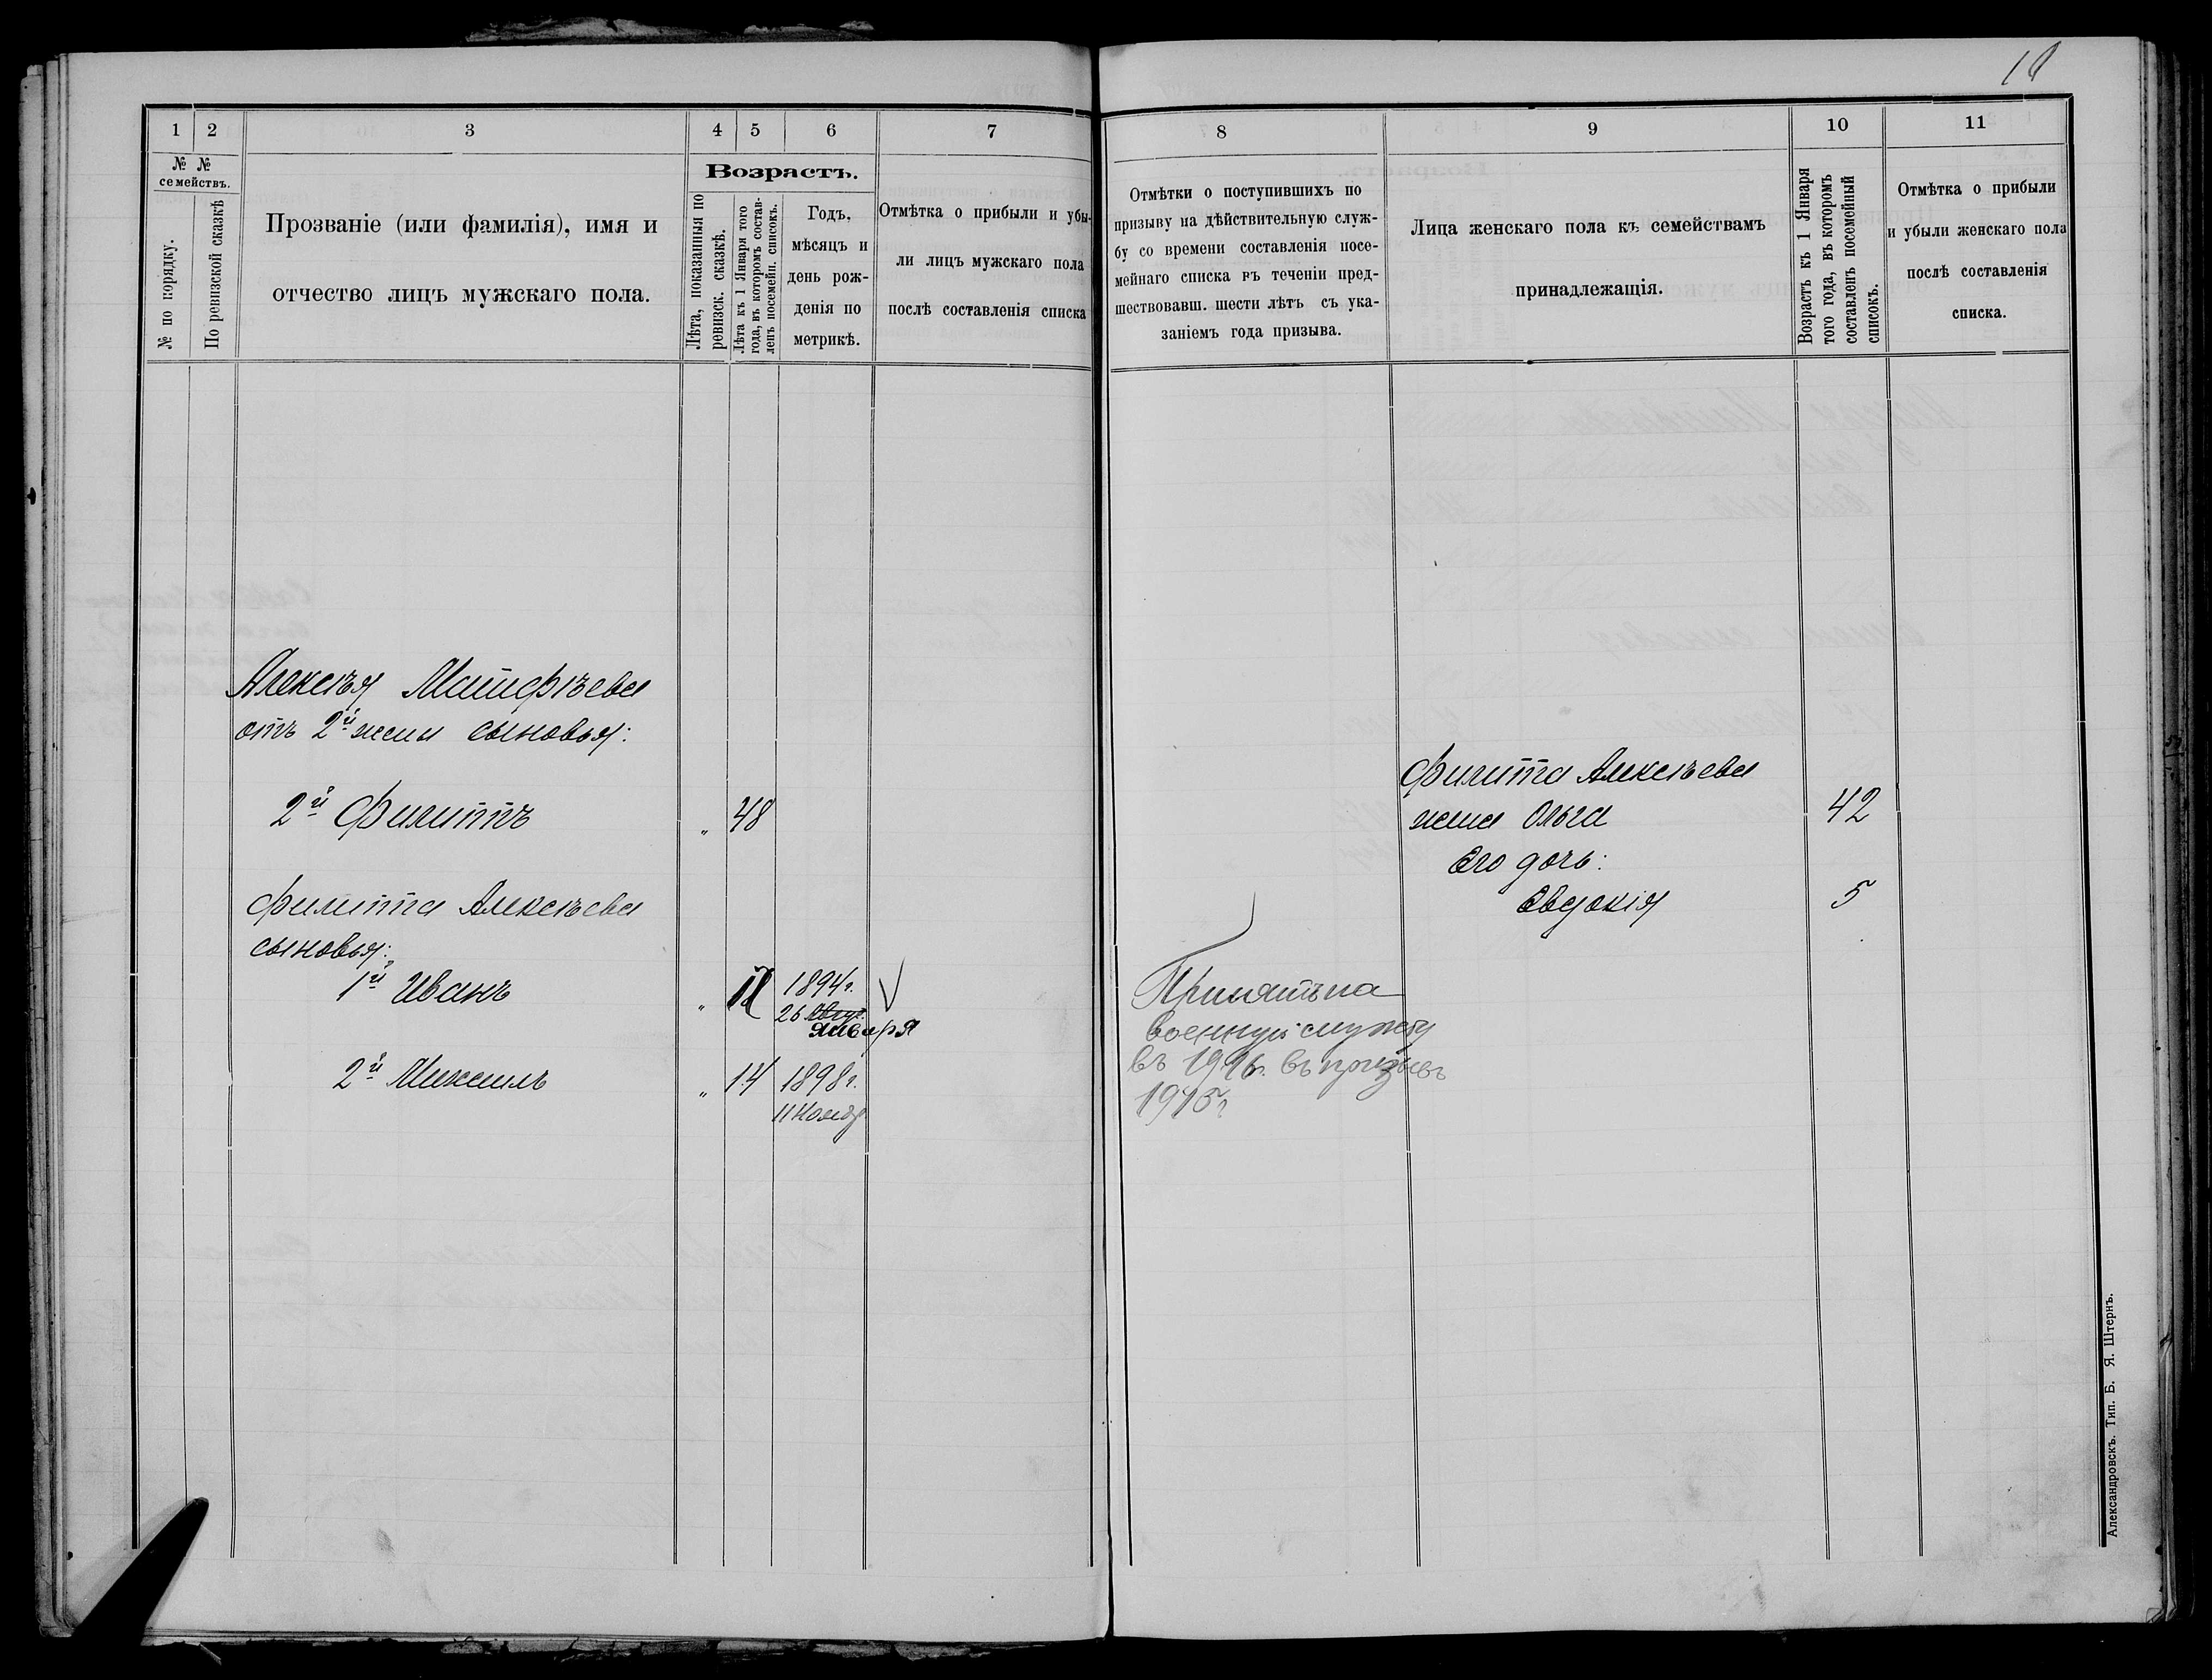 18
1 2 3 4 5 6 7
№ №
семействъ.
№ по порядку.
По ревизской сказкѣ
Прозваніе (или фамилія), имя и
отчество лицъ мужскаго пола.
Возрастъ.
Лѣта, показанныя по
ревизск. сказкѣ.
Лѣта къ 1 Января того
года, въ которомъ состав-
ленъ посемейн. списокъ.
Годъ,
мѣсяцъ и
день рож-
денія по
метрикѣ.
Отмѣтка о прибыли и убы-
ли лицъ мужскаго пола
послѣ составленія списка
Алексѣя Матфѣева
отъ 2й жены сыновья:
2й Филиппъ " 48
Филиппа Алексѣева
сыновья:
1й Иванъ " 1894г.
26 Авгус.
Января
2й Михаилъ " 14 1898г.
11 Ноябр
8 9 10 11
Отмѣтки о поступившихъ по
призыву на дѣйствительную служ-
бу со времени составленія посе-
мейнаго списка въ теченіи пред-
шествовавш. шести лѣтъ съ ука-
заніемъ года призыва.
Лица женскаго пола къ семействамъ
принадлежащія.
Возрастъ къ 1 Января
того года, въ которомъ
составленъ посемейный
списокъ.
Отмѣтка о прибыли
и убыли женскаго пола
послѣ составленія
списка.
Филиппа Алексѣева
жена Ольга 42
Его дочь:
Евдокія 5
Принятъ на
военную службу
въ 1916г. въ призывъ
1915г
Александровскъ. Тип. Б. Я. Штернъ.